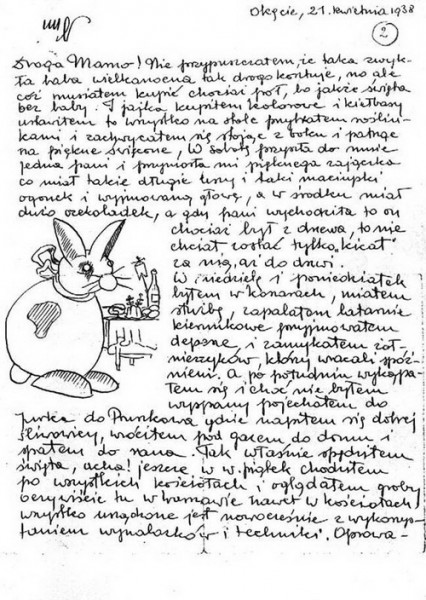 Okęcie, 21. kwietnia 1938
2
Droga Mamo! Nie przypuszczałem, że taka zwyk-
ła baba wielkanocna tak drogo kosztuje, no ale
cóż musiałem kupić chociaż pół, bo jakże święta
bez baby. I jajka kupiłem kolorowe i kiełbasy
ustawiłem to wszystko na stole przybrałem roślin-
kami i zachwycałem się stojąc z boku i patrząc
na piękne święcone, W sobotę przyszła do mnie
jedna pani i przyniosła mi pięknego zajączka
co miał takie długie uszy i taki maciupki
ogonek i wyjmowaną głowę, a w środku miał
dużo czekoladek, a gdy pani wychodziła to on
chociaż był z drzewa, to nie
chciał zostać tylko „kicał"
za nią, aż do drzwi.
W niedzielę i poniedziałek
byłem w koszarach, miałem
służbę, zapalałem latarnie
kierunkowe przyjmowałem
depesze, i zamykałem żoł-
nierzyków, którzy wracali spóź-
nieni. A po południu wykąpa-
łem się i choć nie byłem
wyspany pojechałem do
Jurka do Pruszkowa gdzie napiłem się dobrej
śliwowicy, wróciłem pod gazem do domu i
spałem do rana. Tak właśnie spędziłem
święta, acha! jeszcze w w. piątek chodziłem
po wszystkich kościołach i oglądałem groby
oczywiście tu w Warszawie nawet w kościołach
wszystko urządzone jest nowocześnie z wykorzys-
taniem wynalazków i techniki. Oprowa-